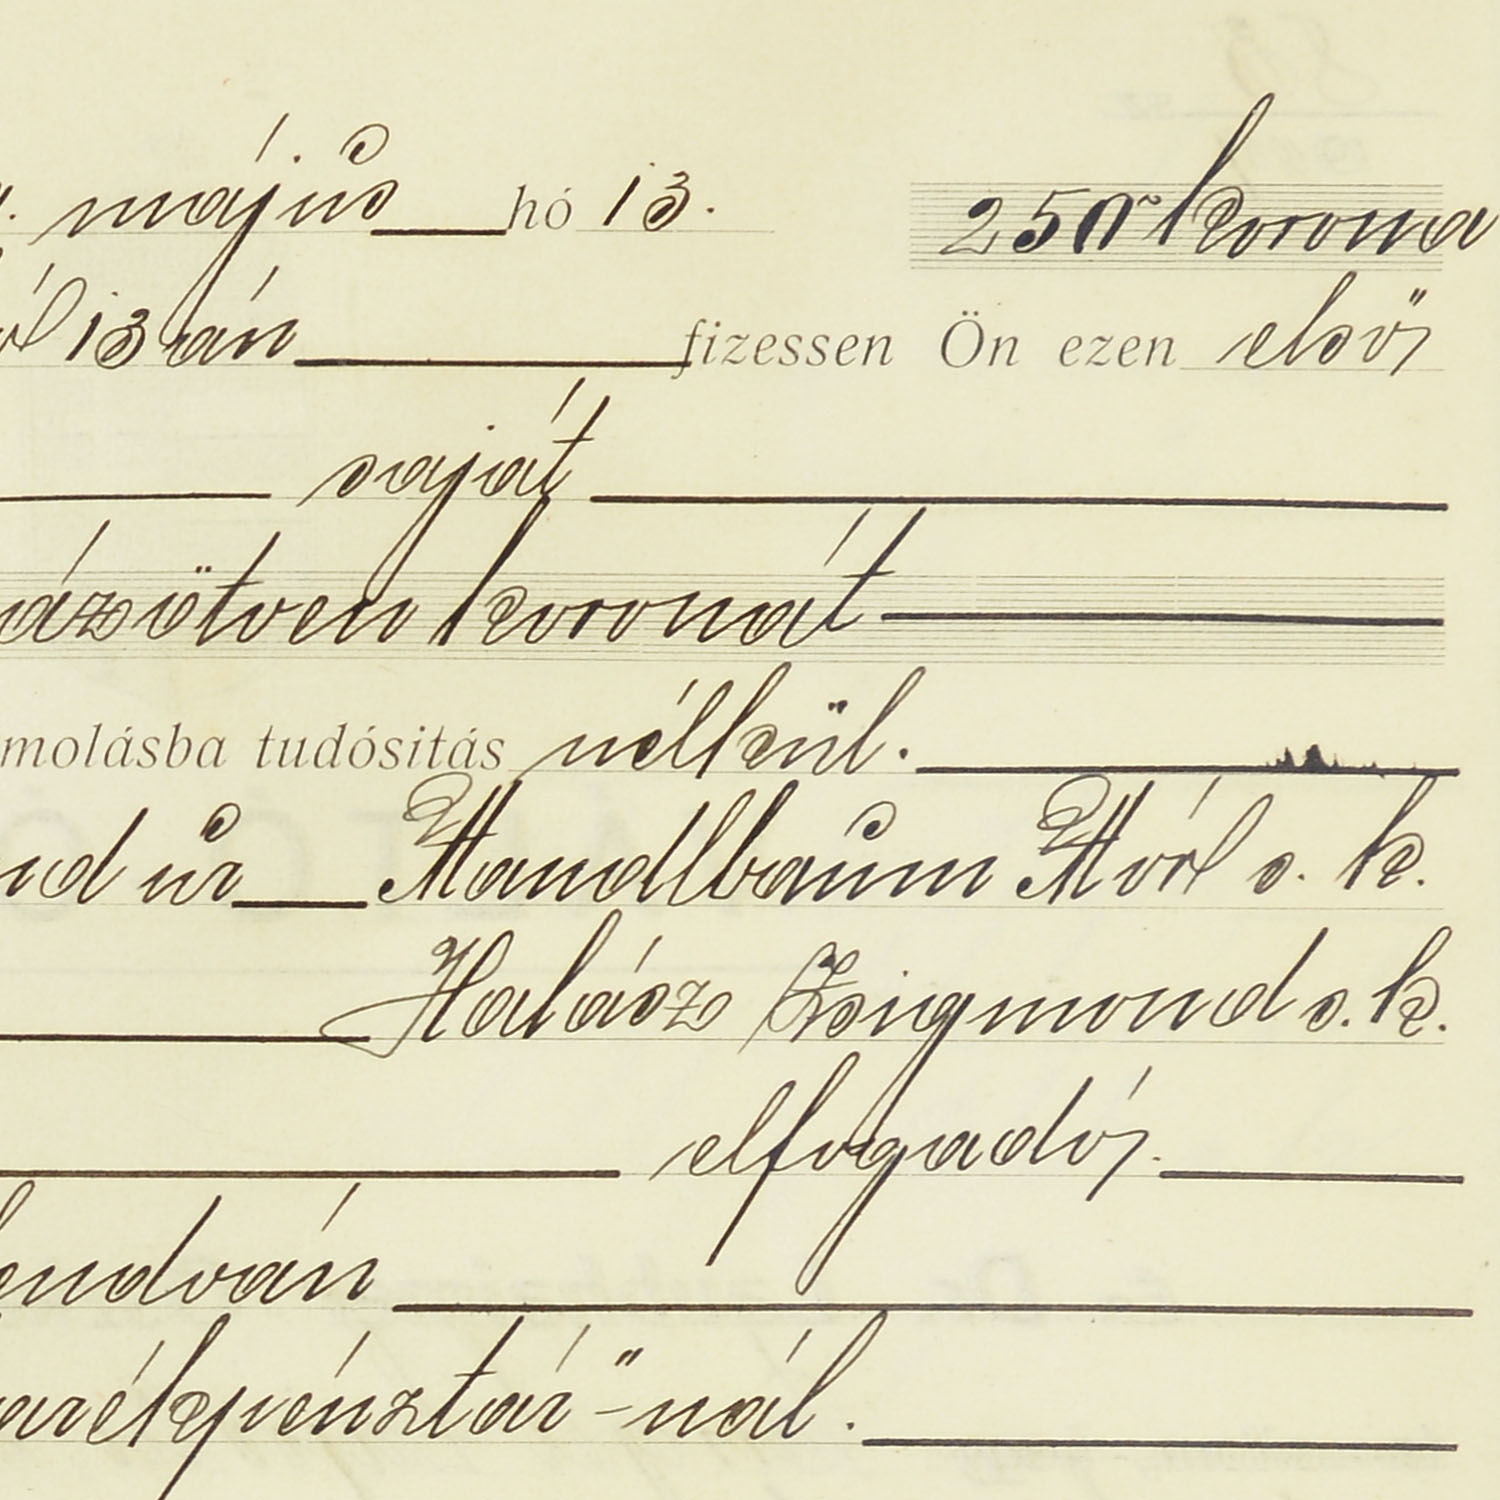 május hó 13. 250 korona
13 án fizessen Ön ezen első
saját
ázötven koronát
molásba tudósitás nélkül.
nd úr Mandlbaum Mór s. k.
Halász Zsigmond s. k.
elfogadó,
endván
arékpénztár"-nál.